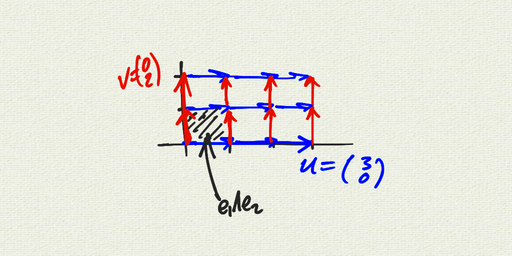 v=(0 2)
u=(3 0)
e₁∧e₂